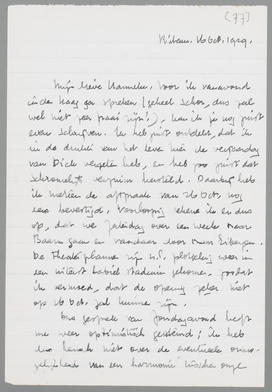 (77)
Hilvers. 16 Oct. 1929.
Mijn lieve Hanneke. Voor ik vanavond
in den Haag ga spreken (geheel schor, dus zal
wel niet zoo fraai zijn!), kan ik je nog juist
even schrijven. Ik heb juist ontdekt, dat ik
in de drukte van het leven hier de verjaardag
van Dick vergeten heb, en heb zoo juist dat
verzuim hersteld. Daarbij heb
ik meteen de afspraak van 26 Oct. nog
eens bevestigd. Voorloopig reken ik er dus
op, dat we Zaterdag over een week naar
Baarn gaan en vandaar door naar
De Theaterplannen zijn
een uiterst labiel stadium gekomen, zoodat
ik vermoed, dat de opening zeker niet
op 26 Oct. zal kunnen zijn.
Ons gesprek van Zondagavond heeft
me weer optimistisch gestemd; ik heb
dus heusch niet over de eventueele onmo-
gelijkheid van een "harmonie" tusschen onze